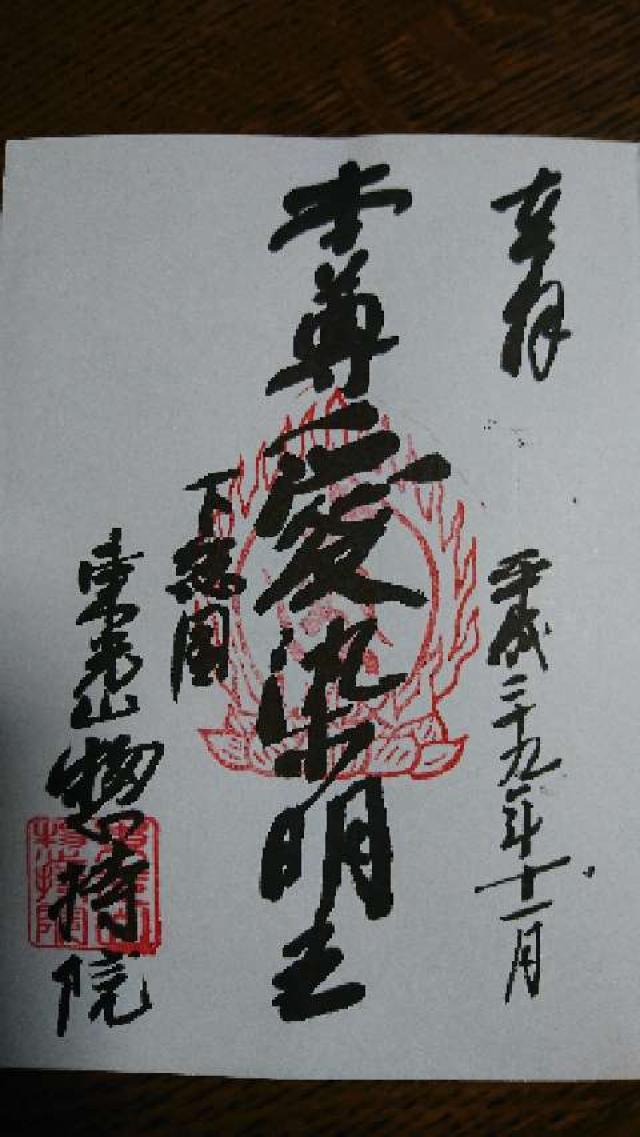 奉拝
平成二十九年十一月
本尊愛染明王
下総国
東光山惣持院